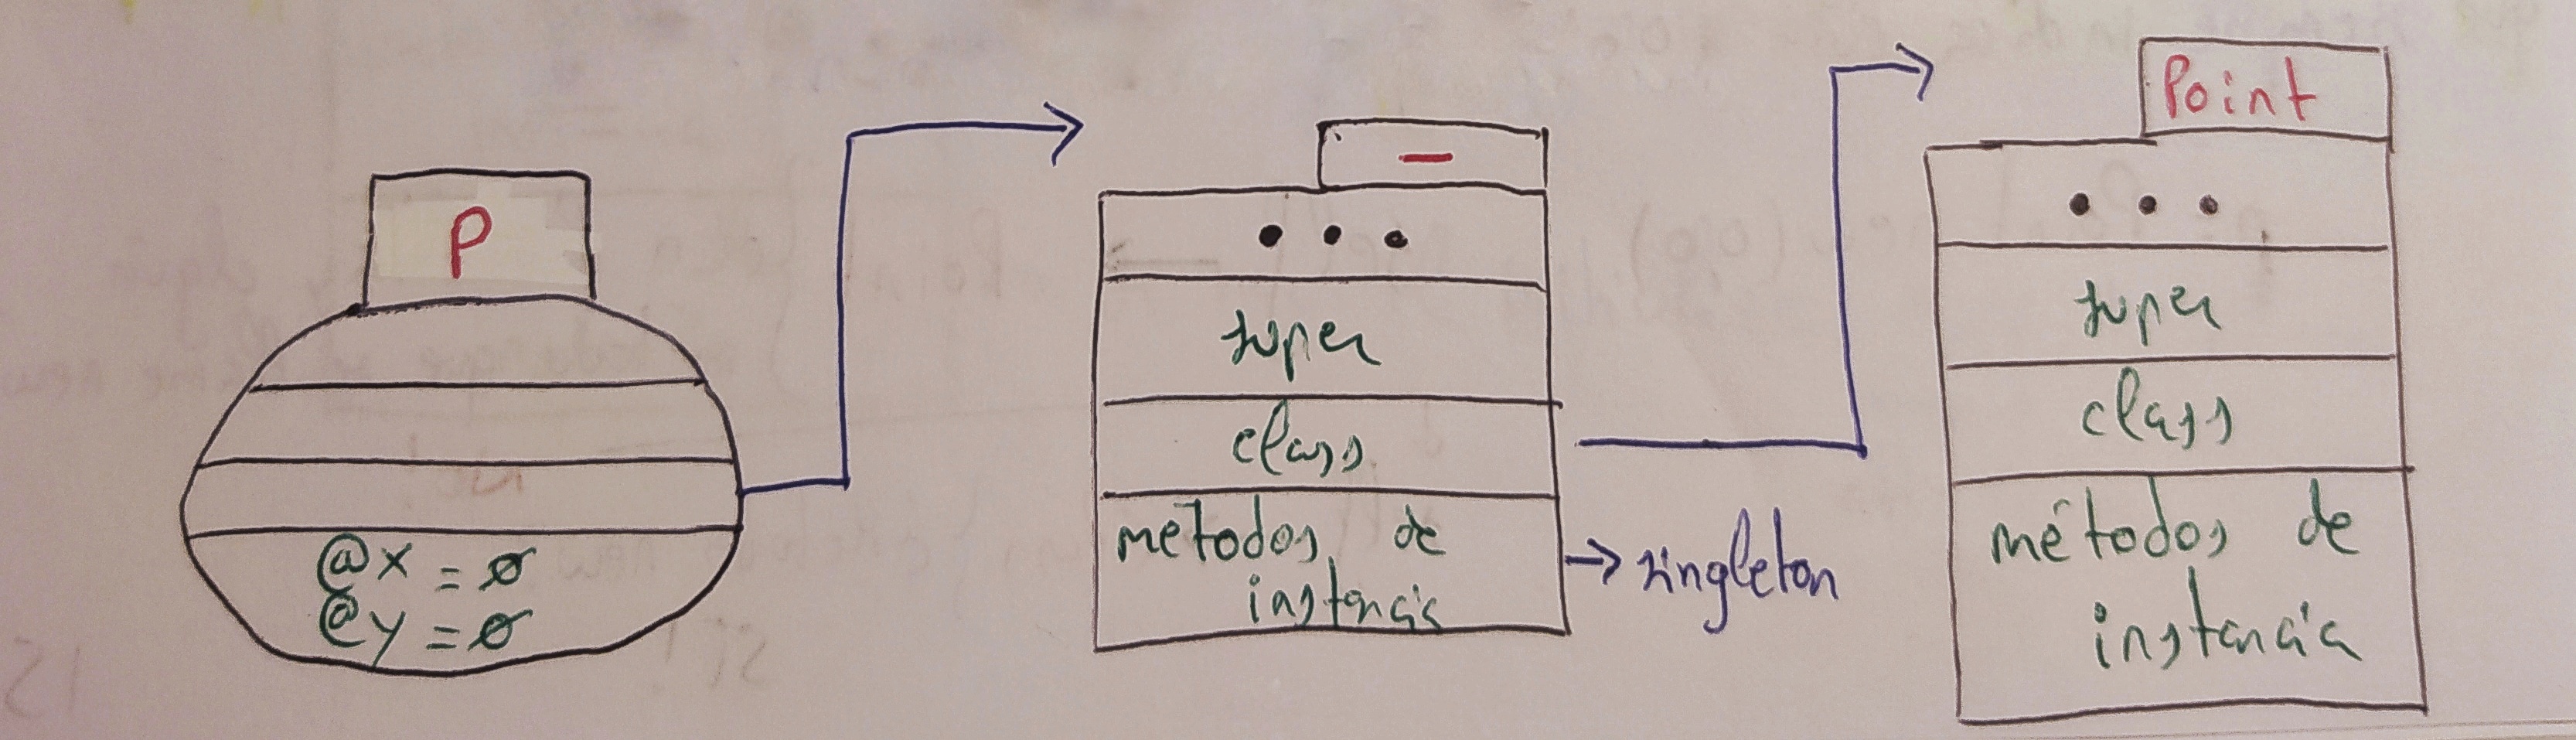 P
@x = 0
@y = 0
—
• • •
super
class
metodos de
instancia
→ singleton
Point
• • •
super
class
métodos de
instancia